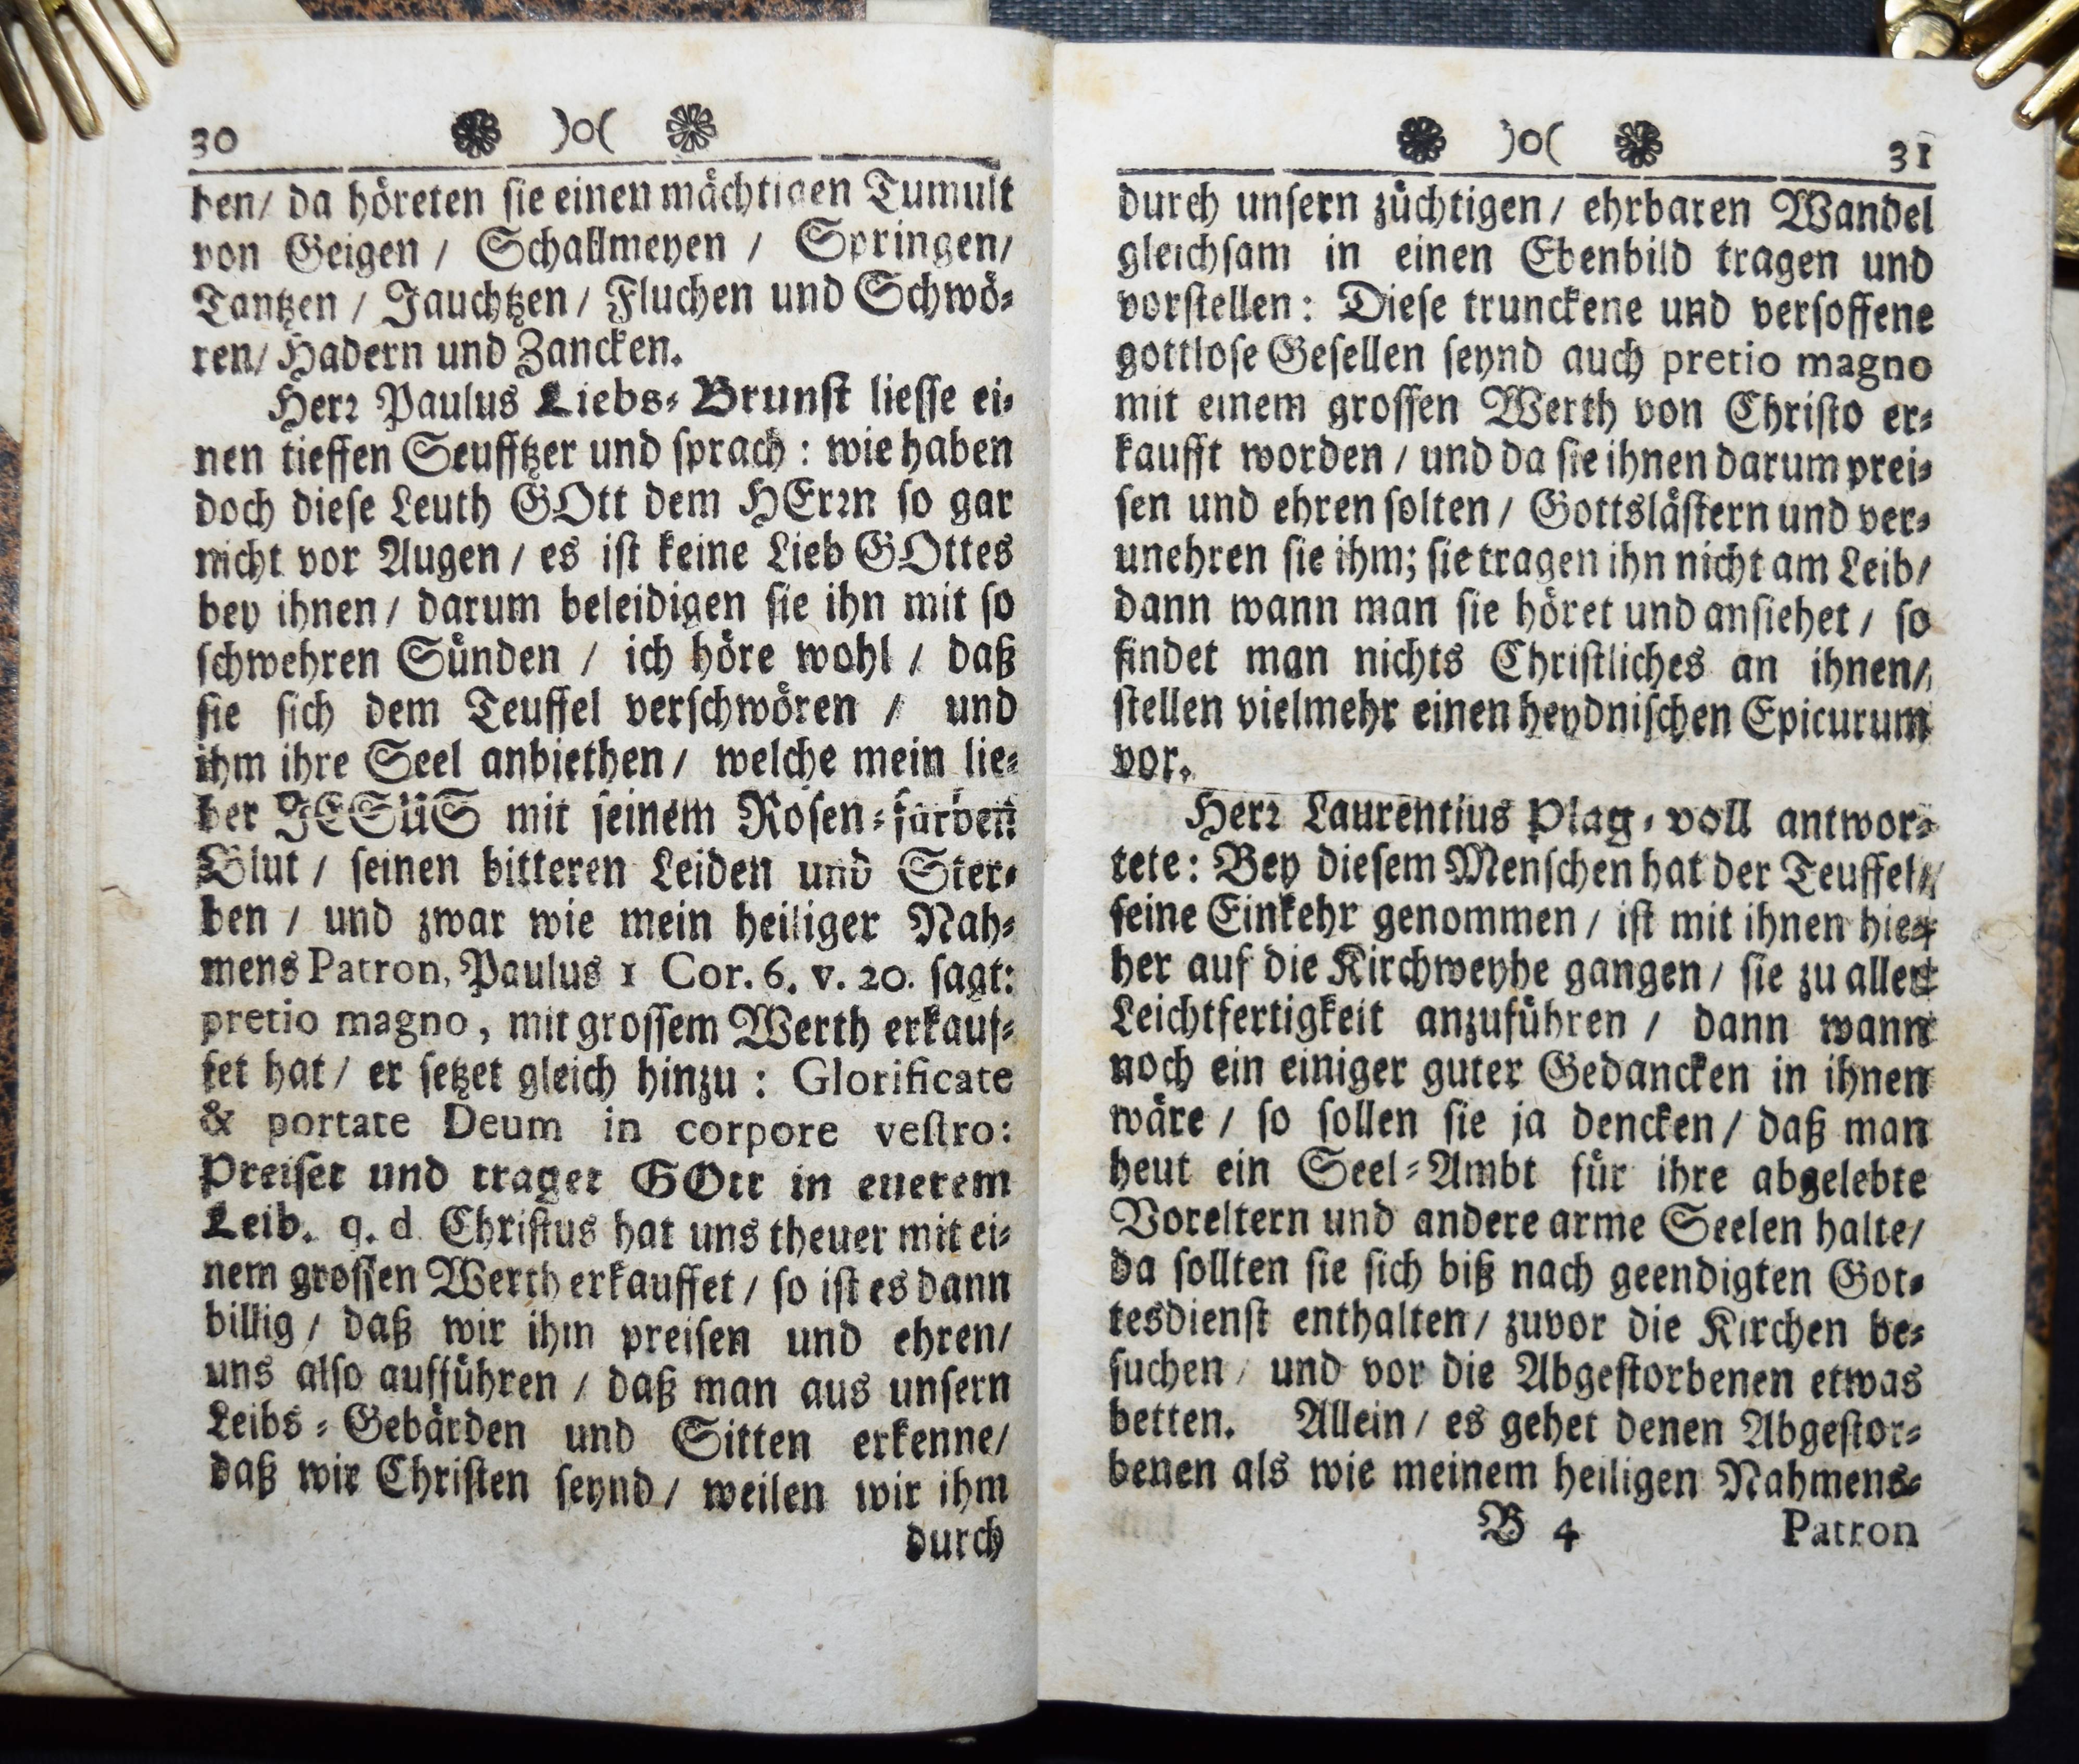 30 )o(
ben/ da höreten sie einen mächtigen Tumult
von Geigen / Schallmeyen / Springen/
Tantzen / Jauchtzen / Fluchen und Schwö-
ren/ Hadern und Zancken.
Herr Paulus Liebs-Brunst liesse ei-
nen tieffen Seufftzer und sprach : wie haben
doch diese Leuth GOtt dem HErrn so gar
nicht vor Augen / es ist keine Lieb GOttes
bey ihnen / darum beleidigen sie ihn mit so
schwehren Sünden / ich höre wohl / daß
sie sich dem Teuffel verschwören / und
ihm ihre Seel anbiethen / welche mein lie-
ber JESUS mit seinem Rosen-farben
Blut / seinen bitteren Leiden und Ster-
ben / und zwar wie mein heiliger Nah-
mens Patron, Paulus 1 Cor. 6. v. 20. sagt:
pretio magno, mit grossem Werth erkauf-
fet hat / er setzet gleich hinzu : Glorificate
& portate Deum in corpore vestro:
Preiset und traget GOtt in euerem
Leib. q. d. Christus hat uns theuer mit ei-
nem grossen Werth erkauffet / so ist es dann
billig / daß wir ihm preisen und ehren/
uns also aufführen / daß man aus unsern
Leibs-Gebärden und Sitten erkenne/
daß wir Christen seynd / weilen wir ihm
durch
)o( 31
durch unsern züchtigen / ehrbaren Wandel
gleichsam in einen Ebenbild tragen und
vorstellen : Diese trunckene und versoffene
gottlose Gesellen seynd auch pretio magno
mit einem grossen Werth von Christo er-
kaufft worden / und da sie ihnen darum prei-
sen und ehren solten / Gottslästern und ver-
unehren sie ihm; sie tragen ihn nicht am Leib/
dann wann man sie höret und ansiehet / so
findet man nichts Christliches an ihnen/
stellen vielmehr einen heydnischen Epicurum
vor.
Herr Laurentius Plag-voll antwor-
tete: Bey diesem Menschen hat der Teuffel/
seine Einkehr genommen / ist mit ihnen hie-
her auf die Kirchweyhe gangen / sie zu aller
Leichtfertigkeit anzuführen / dann wann
noch ein einiger guter Gedancken in ihnen
wäre / so sollen sie ja dencken / daß man
heut ein Seel-Ambt für ihre abgelebte
Voreltern und andere arme Seelen halte/
da sollten sie sich biß nach geendigten Got-
tesdienst enthalten / zuvor die Kirchen be-
suchen / und vor die Abgestorbenen etwas
betten. Allein / es gehet denen Abgestor-
benen als wie meinem heiligen Nahmens-
B 4 Patron